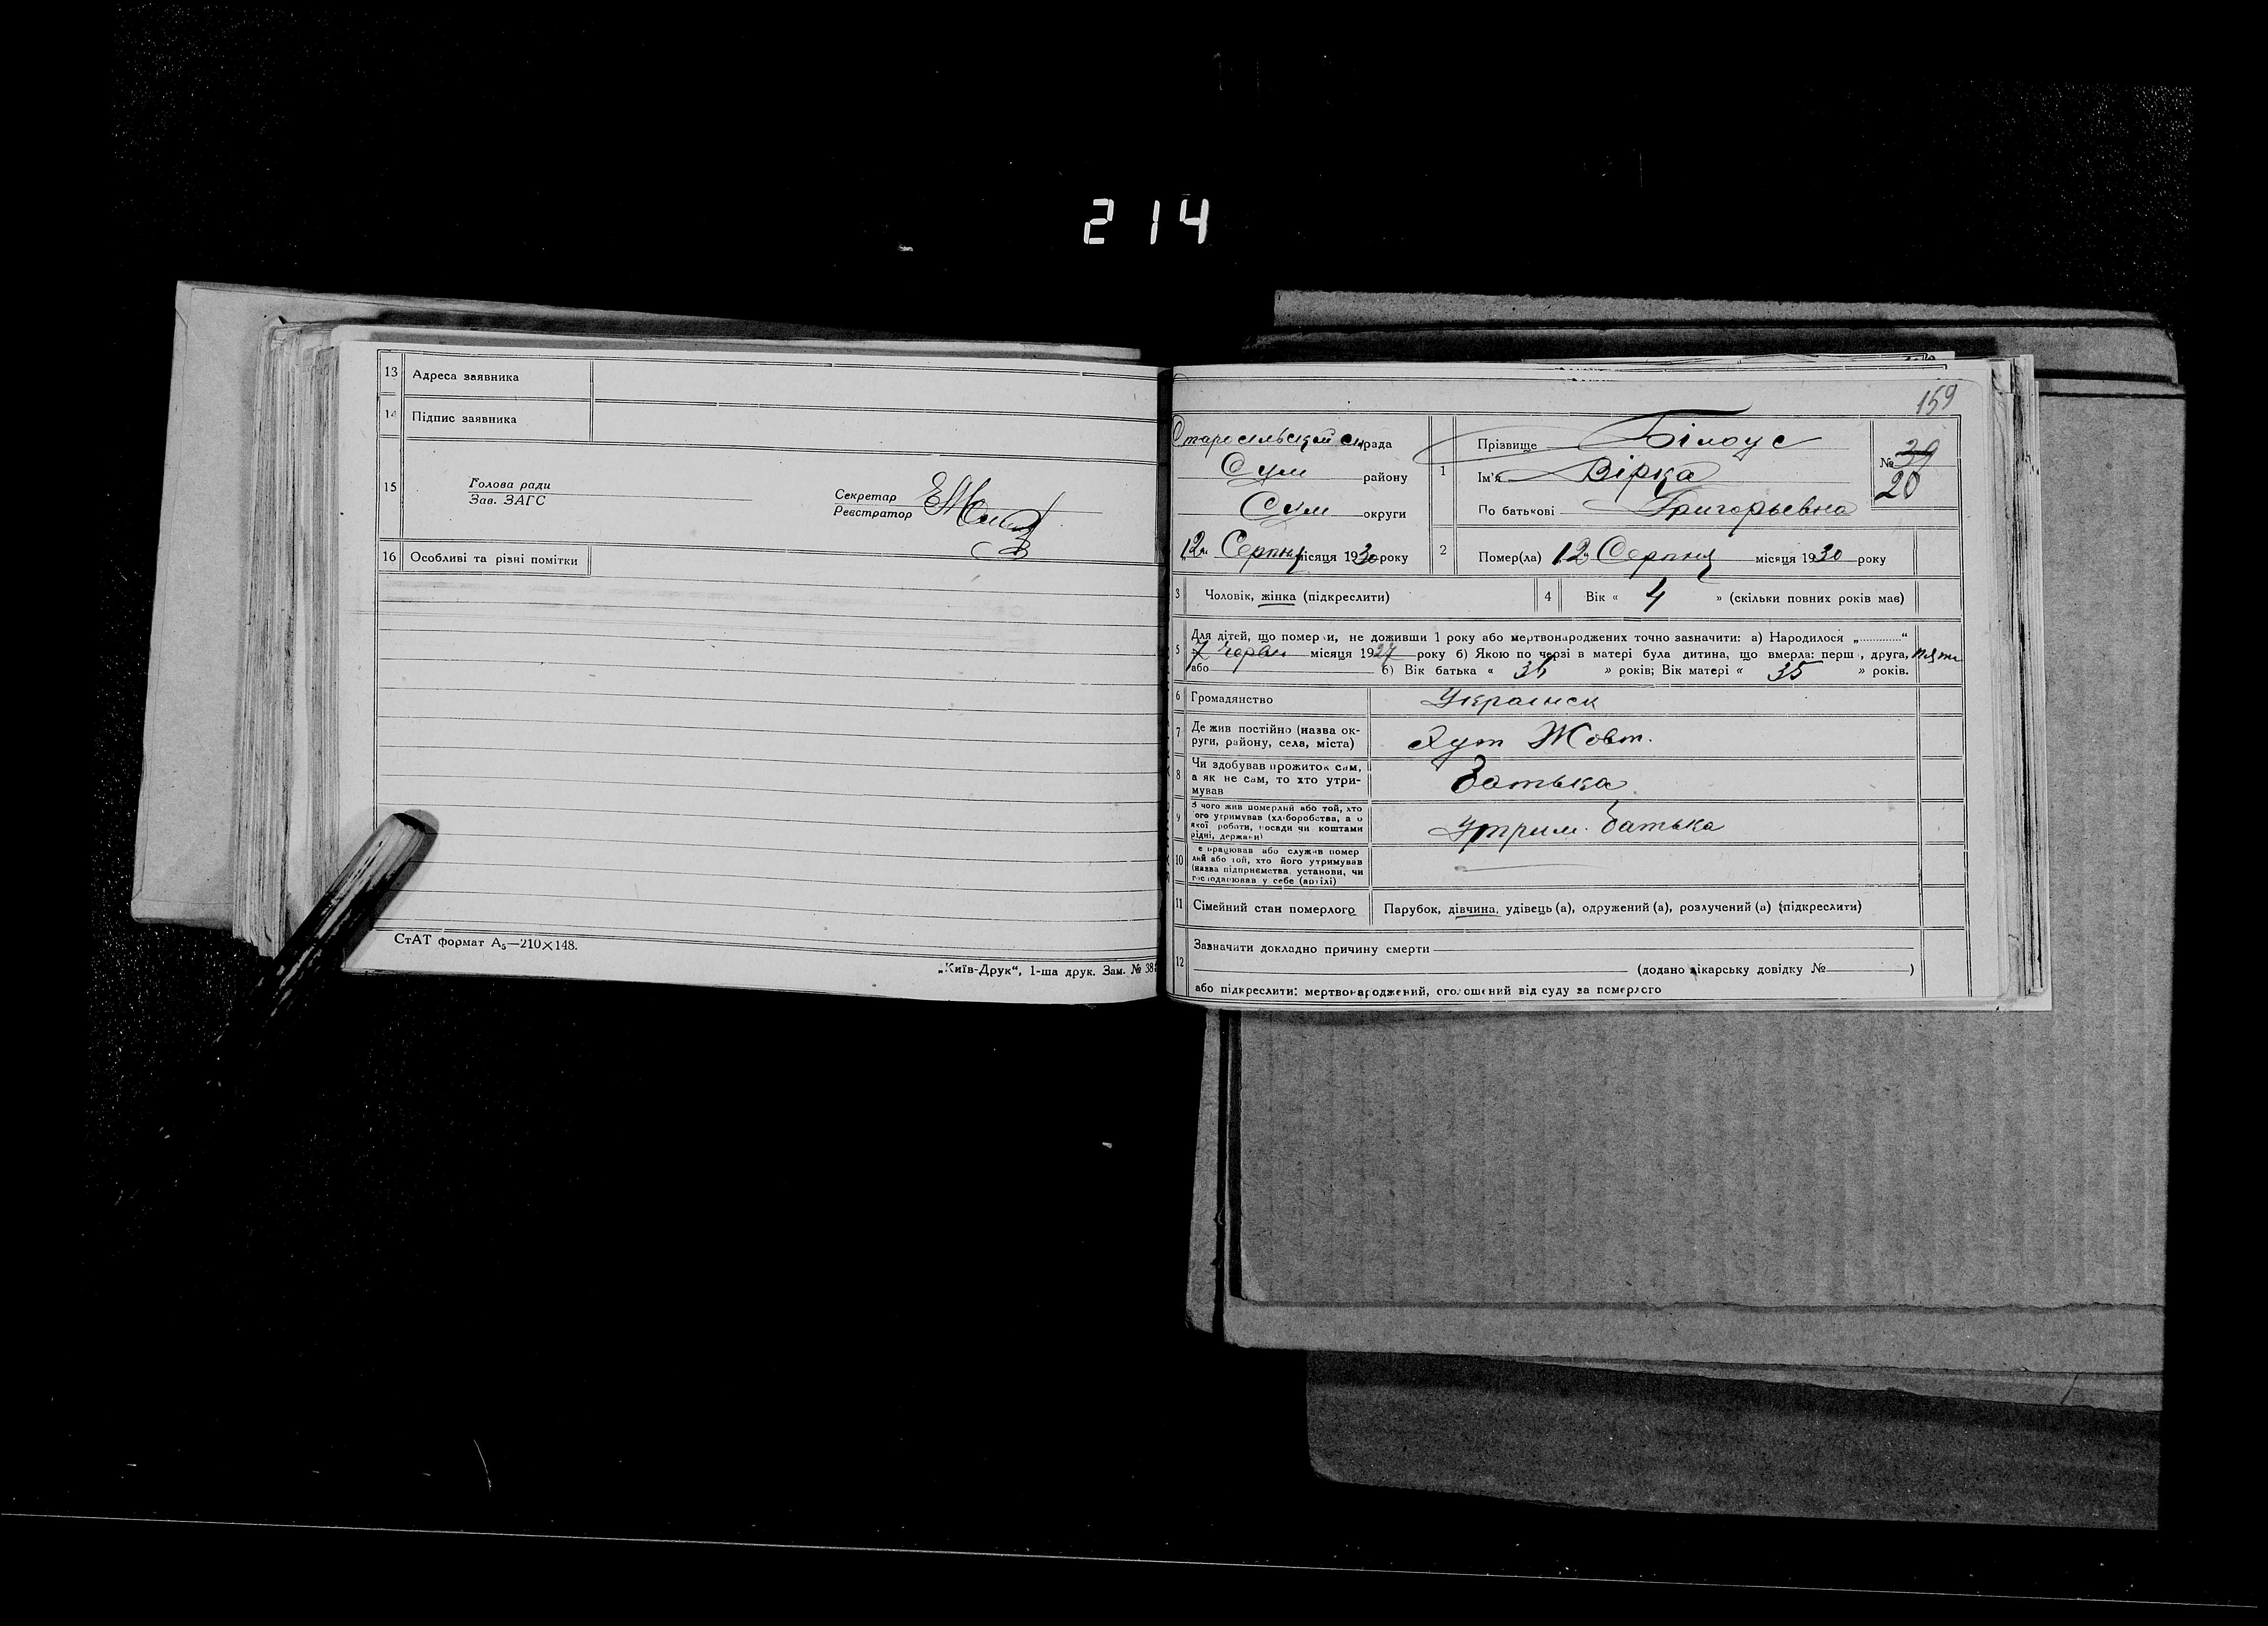 214
13 Адреса заявника
14 Підпис заявника
15 Голова ради
Зав. ЗАГС
Секретар
Реєстратор
16 Особливі та різні помітки
СтАТ формат А5—210×148.
„Київ-Друк“, 1-ша друк. Зам. № 38
159
Старосельський рада
Сум району
Сум округи
12 Серпня місяця 1930 року
1 Прізвище Білоус
Ім'я Вірка
По батькові Григорьевна
№ 39
20
2 Помер(ла) 12 Серпня місяця 1930 року
3 Чоловік, жінка (підкреслити)
4 Вік « 4 » (скільки повних років має)
5 Для дітей, що померли, не доживши 1 року або мертвонароджених точно зазначити: а) Народилося „............“
7 червн місяця 1927 року б) Якою по черзі в матері була дитина, що вмерла: перш , друга, пята
або в) Вік батька « » років; Вік матері « 35 » років.
6 Громадянство Українск
7 Де жив постійно (назва округи, району, села, міста) Хут Жовт.
8 Чи здобував прожиток сам,
а як не сам, то хто утри-
мував Батька
9 З чого жив померлий або той, хто
його утримував (хліборобства, або
якої роботи, посади чи коштами
рідні, держави) Утрим. батька
10 Де працював або служив помер
лий або той, хто його утримував
(назва підприємства, установи, чи
господарював у себе (артілі)
11 Сімейний стан померлого Парубок, дівчина, удівець (а), одружений (а), розлучений (а) (підкреслити)
12 Зазначити докладно причину смерти
(додано лікарську довідку № )
або підкреслити: мертвонароджений, оголошений від суду за померлого